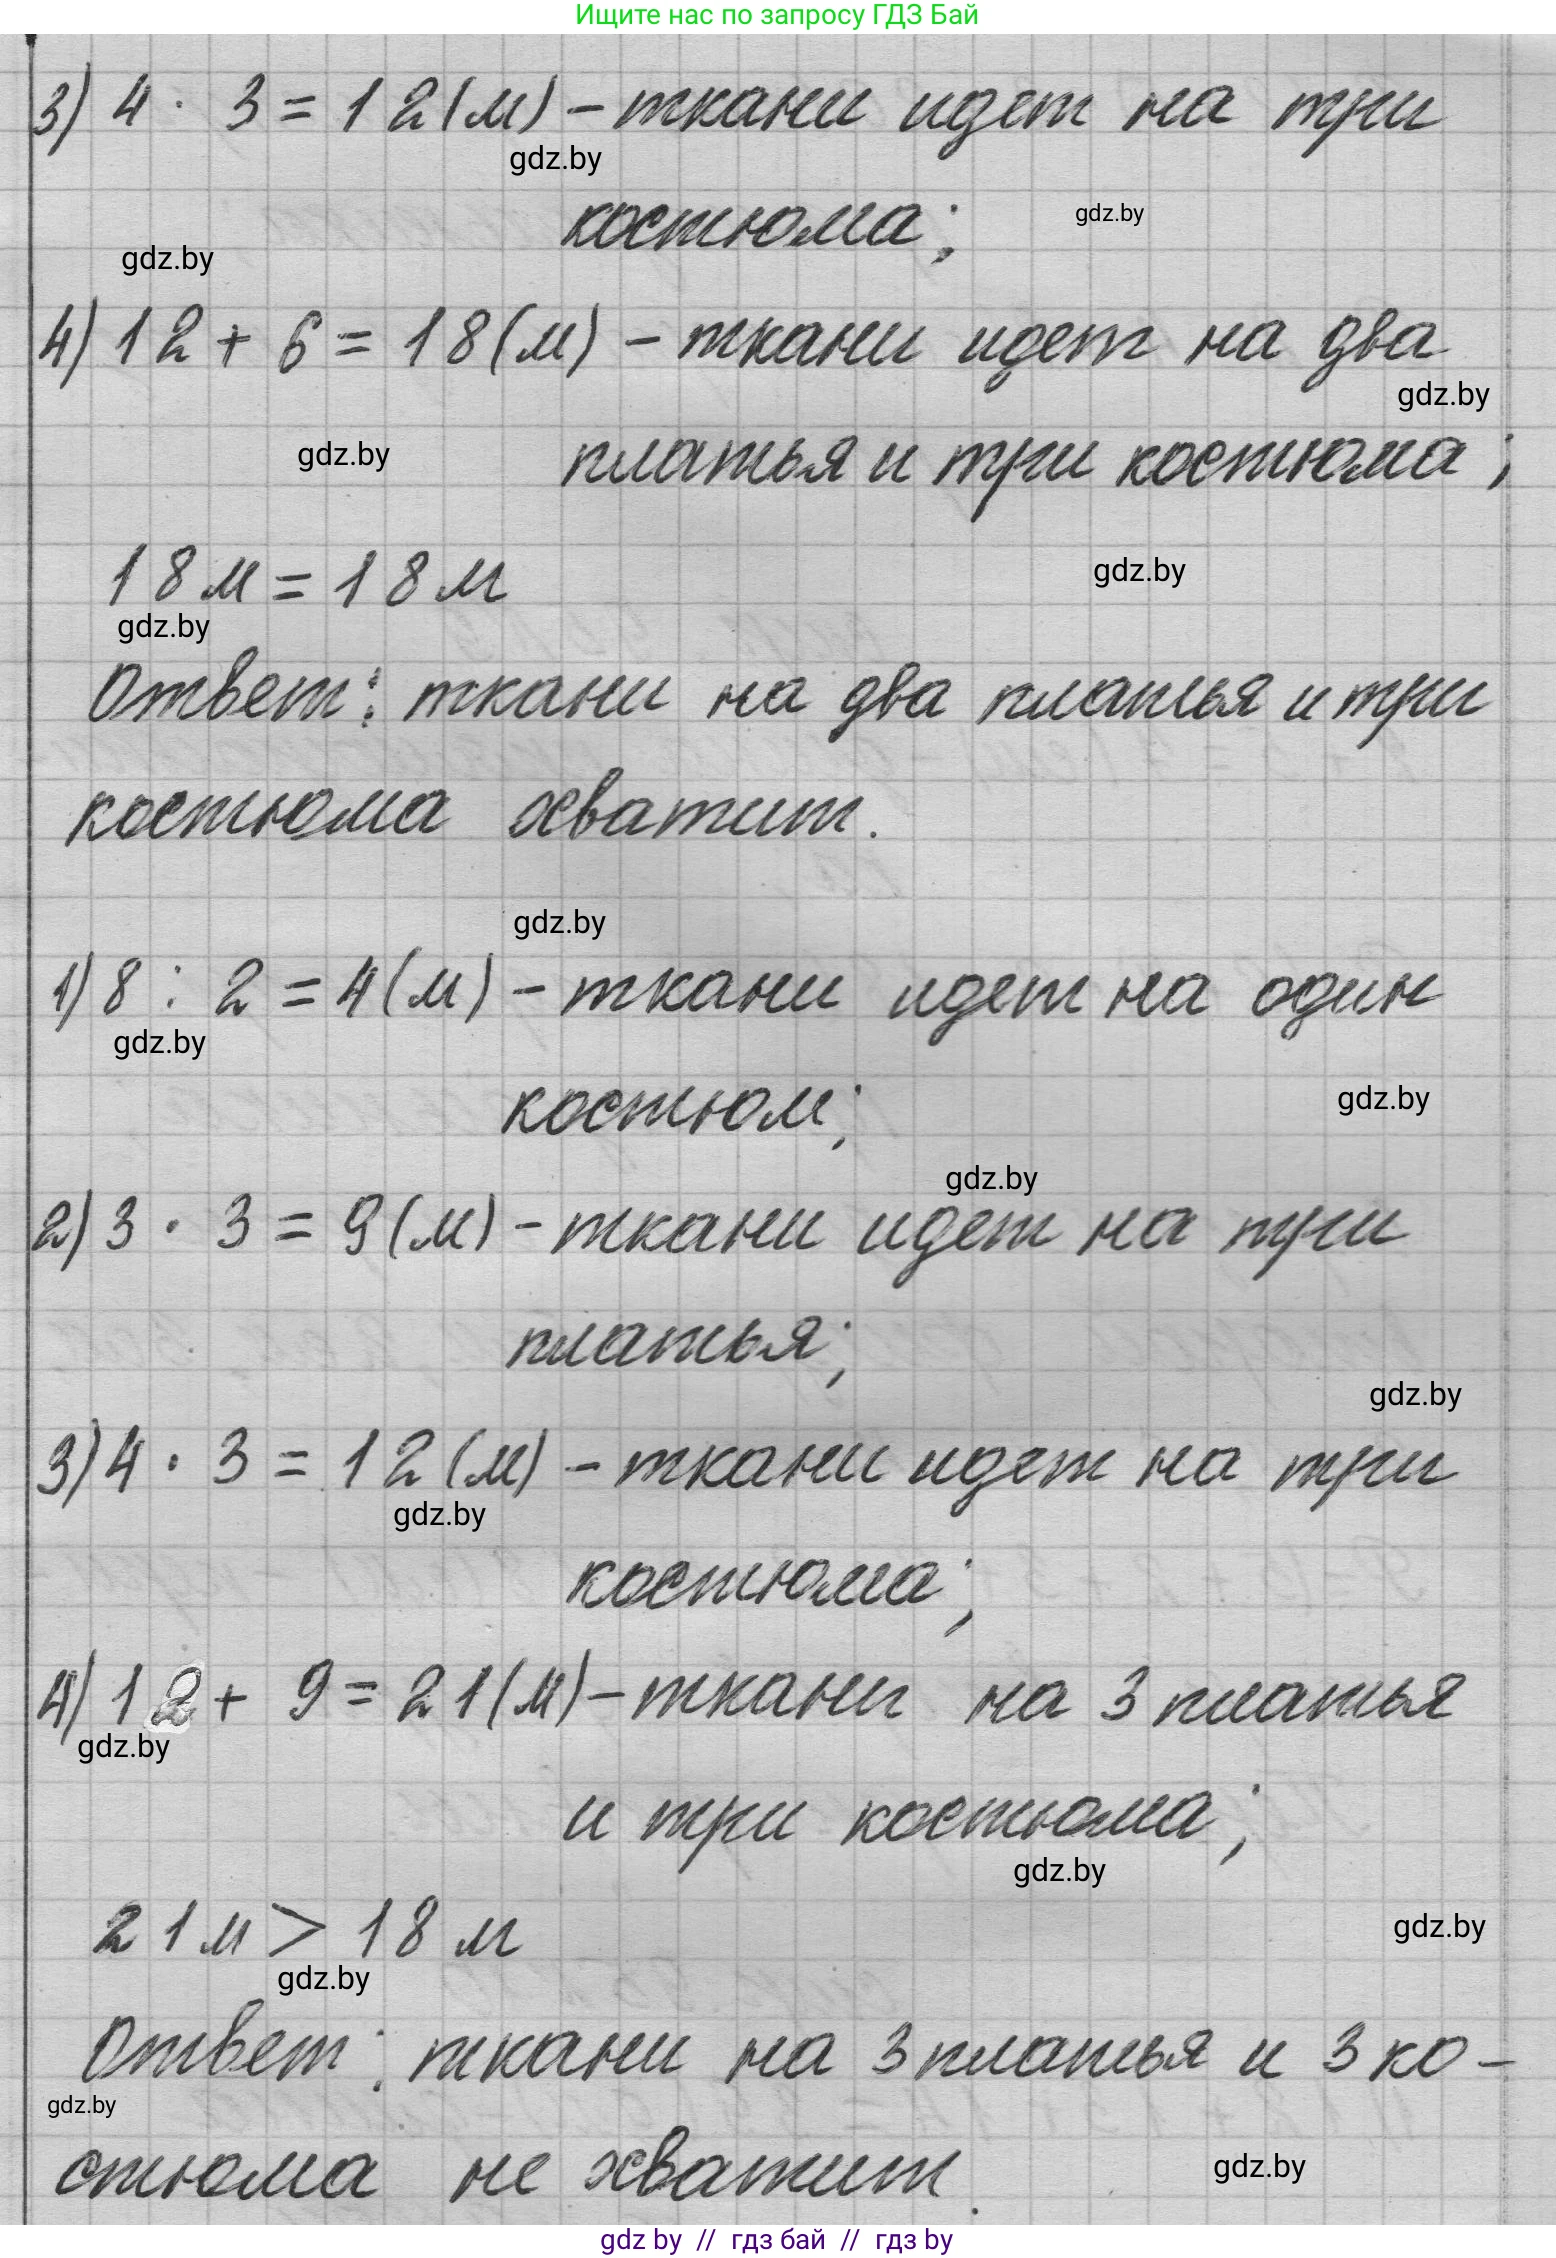 Ищите нас по запросу ГДЗ Бай
3) 4 · 3 = 12 (м) – ткани идет на три
gdz.by
костюма;
gdz.by
gdz.by
4) 12 + 6 = 18 (м) – ткани идет на два
gdz.by
платья и три костюма;
gdz.by
18 м = 18 м
gdz.by
gdz.by
Ответ: ткани на два платья и три
костюма хватит.
gdz.by
1) 8 : 2 = 4 (м) – ткани идет на один
gdz.by
костюм;
gdz.by
gdz.by
2) 3 · 3 = 9 (м) – ткани идет на три
платья;
gdz.by
3) 4 · 3 = 12 (м) – ткани идет на три
gdz.by
костюма;
4) 12 + 9 = 21 (м) – ткани на 3 платья
gdz.by
и три костюма;
gdz.by
21 м > 18 м
gdz.by
gdz.by
Ответ: ткани на 3 платья и 3 ко-
gdz.by
стюма не хватит.
gdz.by
gdz by // гдз бай // гдз by